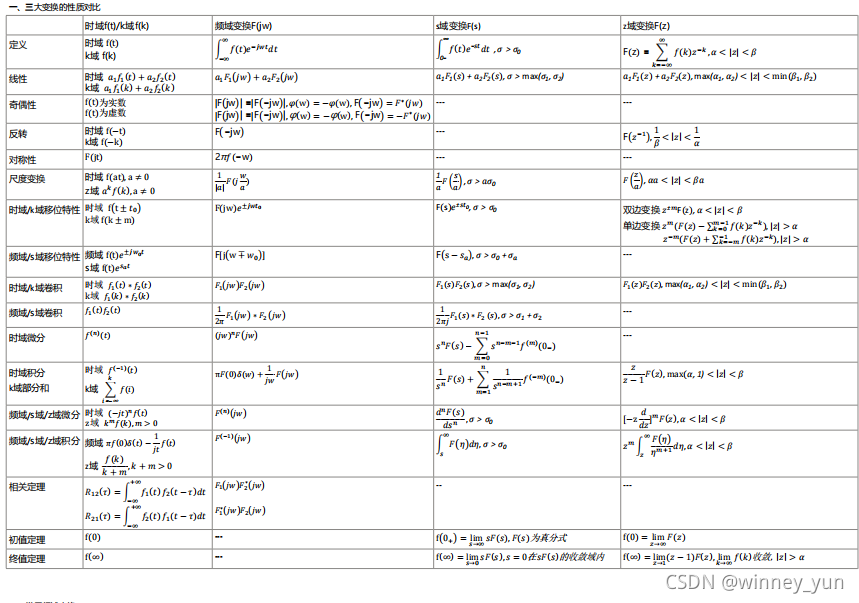 一、三大变换的性质对比
时域f(t)/k域f(k) 频域变换F(jw) s域变换F(s) z域变换F(z)
定义 时域 f(t) k域 f(k) ∫_{-∞}^{∞} f(t)e^{-jwt}dt ∫_{0-}^{∞} f(t)e^{-st}dt ,σ > σ₀ F(z) = ∑_{k=-∞}^{∞} f(k)z^{-k} ,α < |z| < β
线性 时域 a₁f₁(t) + a₂f₂(t) k域 a₁f₁(k) + a₂f₂(k) a₁F₁(jw) + a₂F₂(jw) a₁F₁(s) + a₂F₂(s), σ > max(σ₁, σ₂) a₁F₁(z) + a₂F₂(z), max(α₁, α₂) < |z| < min(β₁, β₂)
奇偶性 f(t)为实数 |F(jw)| =|F(-jw)|, φ(w) = -φ(w), F(-jw) = F*(jw) --- ---
f(t)为虚数 |F(jw)| =|F(-jw)|, φ(w) = -φ(w), F(-jw) = -F*(jw)
反转 时域 f(-t) k域 f(-k) F(-jw) --- F(z⁻¹), 1/β < |z| < 1/α
对称性 F(jt) 2πf(-w) --- ---
尺度变换 时域 f(at), a ≠ 0 z域 aᵏf(k), a ≠ 0 1/|a| F(j w/a) 1/a F(s/a), σ > aσ₀ F(z/a), αa < |z| < βa
时域/k域移位特性 时域 f(t ± t₀) k域 f(k ± m) F(jw)e^{±jwt₀} F(s)e^{±st₀}, σ > σ₀ 双边变换 z^{±m}F(z), α < |z| < β
单边变换 z^m(F(z) - ∑_{k=0}^{m-1} f(k)z^{-k}), |z| > α
z^{-m}(F(z) + ∑_{k=-m}^{-1} f(k)z^{-k}), |z| > α
频域/s域移位特性 频域 f(t)e^{±jw₀t} s域 f(t)e^{sₐt} F[j(w ∓ w₀)] F(s - sₐ), σ > σ₀ + σₐ ---
时域/k域卷积 时域 f₁(t) * f₂(t) k域 f₁(k) * f₂(k) F₁(jw)F₂(jw) F₁(s)F₂(s), σ > max(σ₁, σ₂) F₁(z)F₂(z), max(α₁, α₂) < |z| < min(β₁, β₂)
频域/s域卷积 f₁(t)f₂(t) 1/2π F₁(jw) * F₂(jw) 1/2πj F₁(s) * F₂(s), σ > σ₁ + σ₂ ---
时域微分 f⁽ⁿ⁾(t) (jw)ⁿF(jw) sⁿF(s) - ∑_{m=0}^{n-1} s^{n-m-1}f^{(m)}(0₋) ---
时域积分 k域部分和 时域 f^{(-1)}(t) k域 ∑_{i=-∞}^{k} f(i) πF(0)δ(w) + 1/jw F(jw) 1/sⁿ F(s) + ∑_{m=1}^{n} 1/s^{n-m+1} f^{(-m)}(0₋) z/(z-1) F(z), max(α, 1) < |z| < β
频域/s域/z域微分 时域 (-jt)ⁿf(t) z域 k^m f(k), m > 0 F⁽ⁿ⁾(jw) dⁿF(s)/dsⁿ , σ > σ₀ [-z d/dz]^m F(z), α < |z| < β
频域/s域/z域积分 频域 πf(0)δ(t) - 1/jt f(t) z域 f(k)/(k+m), k + m > 0 F^{(-1)}(jw) ∫_{s}^{∞} F(η)dη, σ > σ₀ z^m ∫_{z}^{∞} F(η)/η^{m+1} dη, α < |z| < β
相关定理 R₁₂(τ) = ∫_{-∞}^{+∞} f₁(t)f₂(t-τ)dt F₁(jw)F₂*(jw) -- ---
R₂₁(τ) = ∫_{-∞}^{+∞} f₂(t)f₁(t-τ)dt F₁*(jw)F₂(jw)
初值定理 f(0) --- f(0₊) = lim_{s→∞} sF(s), F(s)为真分式 f(0) = lim_{z→∞} F(z)
终值定理 f(∞) --- f(∞) = lim_{s→0} sF(s), s = 0在sF(s)的收敛域内 f(∞) = lim_{z→1}(z-1)F(z), lim_{k→∞} f(k)收敛, |z| > α
CSDN @winney_yun